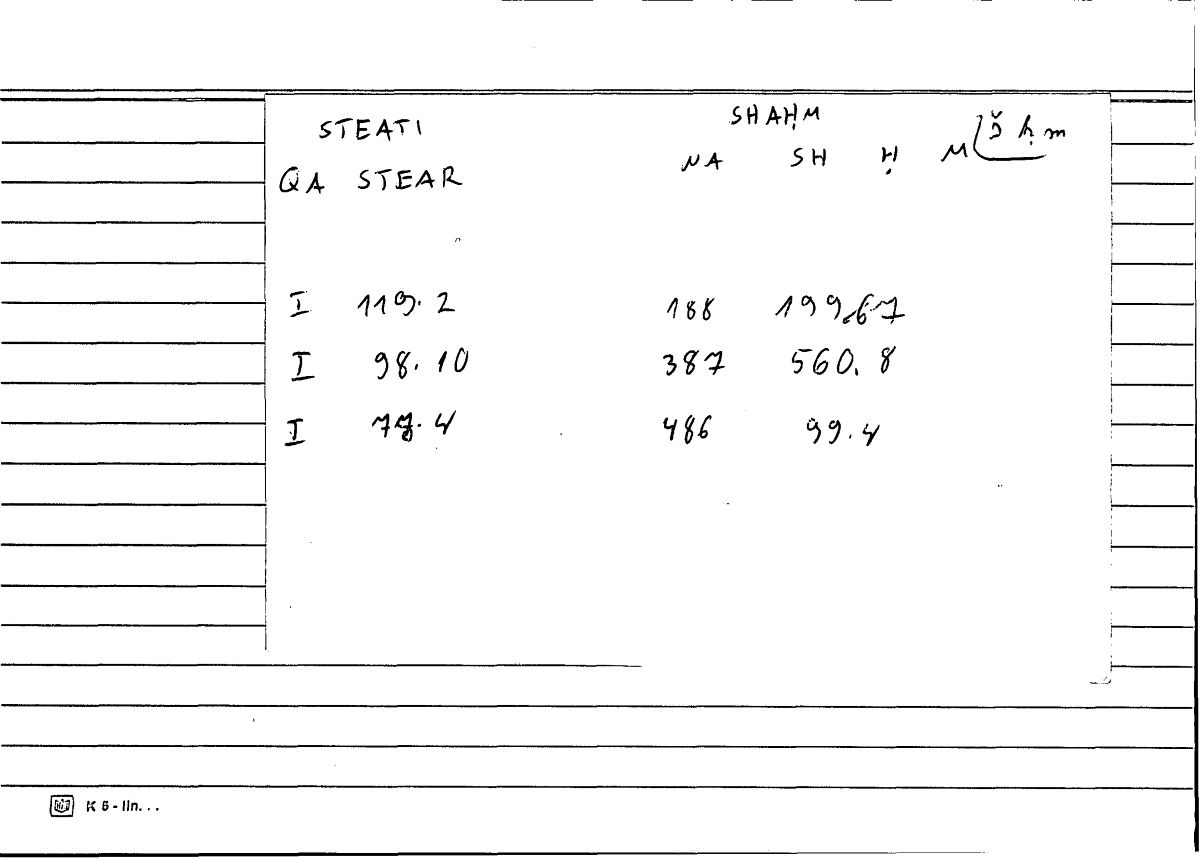 STEATI SHAḤM
QA STEAR NA SH Ḥ M š ḥ m
I 119.2 188 199.67
I 98.10 387 560.8
I 77.4 486 99.4
K 5 - lin...